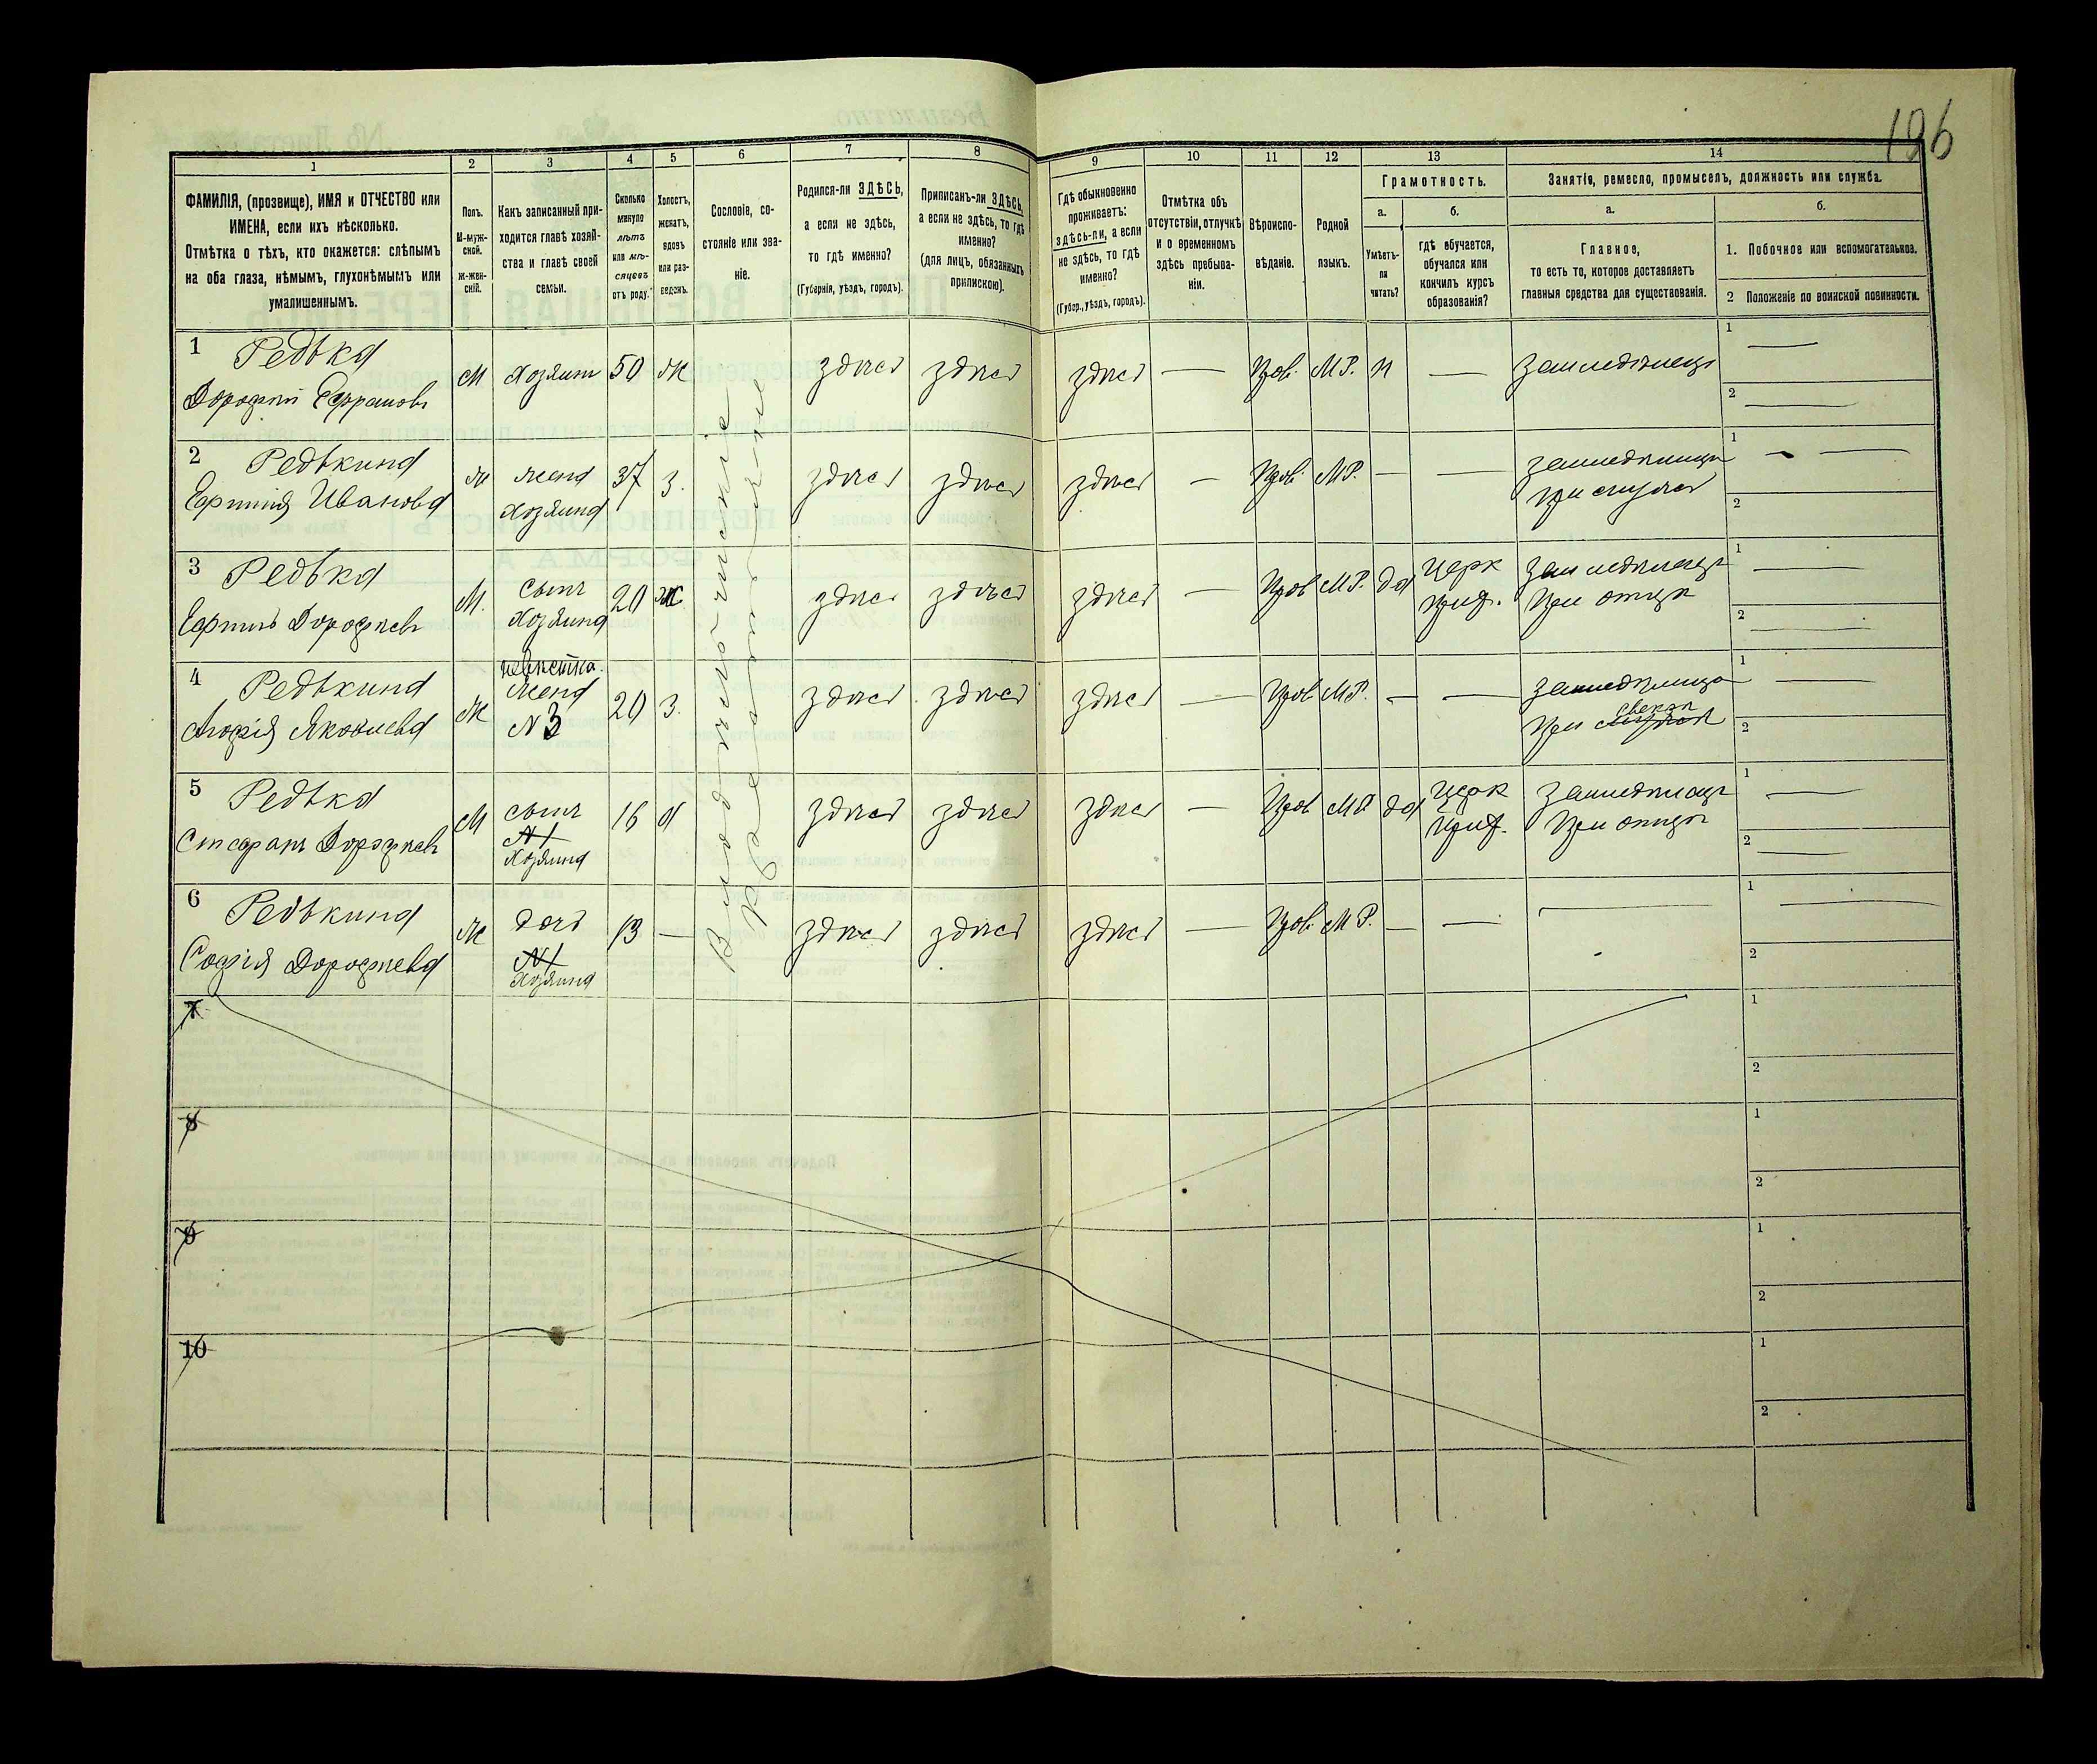 196
1 2 3 4 5 6 7 8 9 10 11 12 13 14
ФАМИЛІЯ, (прозвище), ИМЯ и ОТЧЕСТВО или
ИМЕНА, если ихъ нѣсколько.
Отмѣтка о тѣхъ, кто окажется: слѣпымъ
на оба глаза, нѣмымъ, глухонѣмымъ или
умалишеннымъ.
Полъ.
М-муж-
ской.
Ж-жен-
скій.
Какъ записанный при-
ходится главѣ хозяй-
ства и главѣ своей
семьи.
Сколько
минуло
лѣтъ
или мѣ-
сяцевъ
отъ роду.
Холостъ,
женатъ,
вдовъ
или раз-
веденъ.
Сословіе, со-
стояніе или зва-
ніе.
Родился-ли ЗДѢСЬ,
а если не здѣсь,
то гдѣ именно?
(Губернія, уѣздъ, городъ).
Приписанъ-ли ЗДѢСЬ,
а если не здѣсь, то гдѣ
именно?
(для лицъ, обязанныхъ
припискою).
Гдѣ обыкновенно
проживаетъ:
здѣсь-ли, а если
не здѣсь, то гдѣ
именно?
(Губер., уѣздъ, городъ).
Отмѣтка объ
отсутствіи, отлучкѣ
и о временномъ
здѣсь пребыва-
ніи.
Вѣроиспо-
вѣданіе.
Родной
языкъ.
Грамотность.
а.
Умѣетъ-
ли
читать?
б.
гдѣ обучается,
обучался или
кончилъ курсъ
образованія?
Занятія, ремесло, промыселъ, должность или служба.
а.
Главное,
то есть то, которое доставляетъ
главныя средства для существованія.
б.
1. Побочное или вспомогательное.
2 Положеніе по воинской повинности.
1 Редька
Дорофѣй Ефрамовъ
М Хозяинъ 50 Ж здѣсь здѣсь здѣсь — Прав. М.Р. н — Земледѣлецъ
1 —
2 —
2 Редькина
Ефимія Иванова
Ж жена
Хозяина
37 З. здѣсь здѣсь здѣсь — Прав. М.Р. — —
Земледѣлица
при мужѣ
1 —
2
3 Редька
Ефимъ Дорофѣевъ
М. сынъ
Хозяина
20 Ж здѣсь здѣсь здѣсь — Прав М.Р. да
Церк
прих.
Земледѣлецъ
При отцѣ
1 —
2 —
4 Редькина
Агафія Яковлева
Ж невѣстка.
жена
N 3
20 З. здѣсь здѣсь здѣсь — Прав М.Р. — —
Земледѣлица
свекрѣ
При
1 —
2
5 Редька
Стефанъ Дорофѣевъ
М сынъ
N 1
Хозяина
16 Х здѣсь здѣсь здѣсь — Прав М.Р. да
Церк
прих.
Земледѣлецъ
При отцѣ
1 —
2 —
6 Редькина
Софія Дорофѣева
Ж дочь
N 1
Хозяина
13 — здѣсь здѣсь здѣсь — Прав. М.Р. — — —
1 —
2
Крестьяне
7
1
2
8
1
2
9
1
2
10
1
2